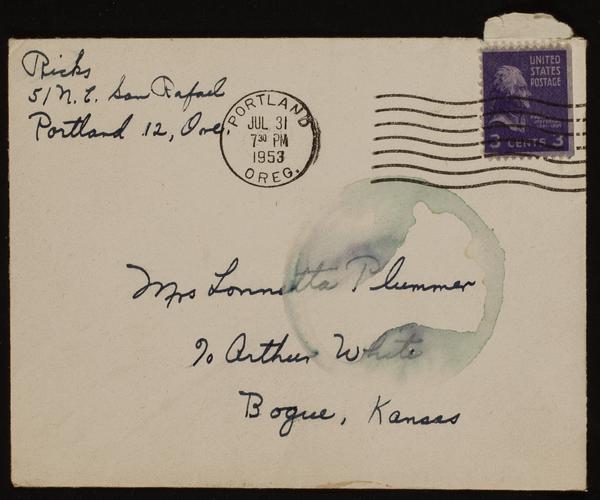 Ricks
51 N.E. San Rafael
Portland 12, Ore.
PORTLAND
JUL 31
7 30 PM
1953
OREG.
UNITED
STATES
POSTAGE
3 CENTS 3
Mrs Lonnetta Plummer
% Arthur White
Bogue, Kansas